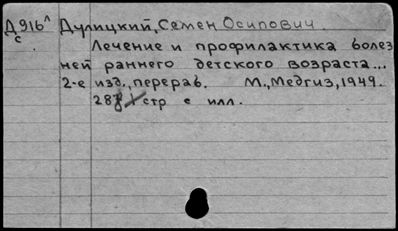 Д916 л Дулицкий, Семен Осипович
с
Лечение и профилактика болез
ней раннего детского возраста...
2-е изд., перераб. М., Медгиз, 1949.
стр с илл.